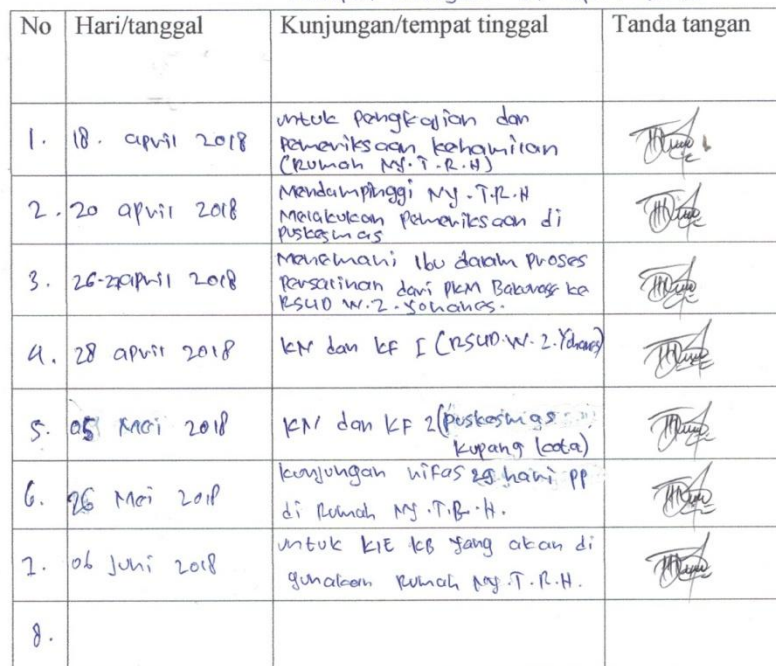 No Hari/tanggal Kunjungan/tempat tinggal Tanda tangan
1. 18. april 2018 untuk pengkajian dan
pemeriksaan kehamilan
(Rumah NY.T.R.H)
2. 20 april 2018 Mendampinggi NY.T.R.H
Melakukan pemeriksaan di
puskesmas
3. 26-27 april 2018 Menemani Ibu dalam proses
persalinan dari PKM ke
RSUD W.Z. Yohanes.
4. 28 april 2018 KN dan KF I (RSUD.W.Z.Yohanes)
5. 05 Mei 2018 KN dan KF 2 (puskesmas
kupang kota)
6. 26 Mei 2018 kunjungan nifas 29 hari pp
di Rumah NY.T.R.H.
7. 06 Juni 2018 untuk KIE KB yang akan di
gunakan Rumah NY.T.R.H.
8.